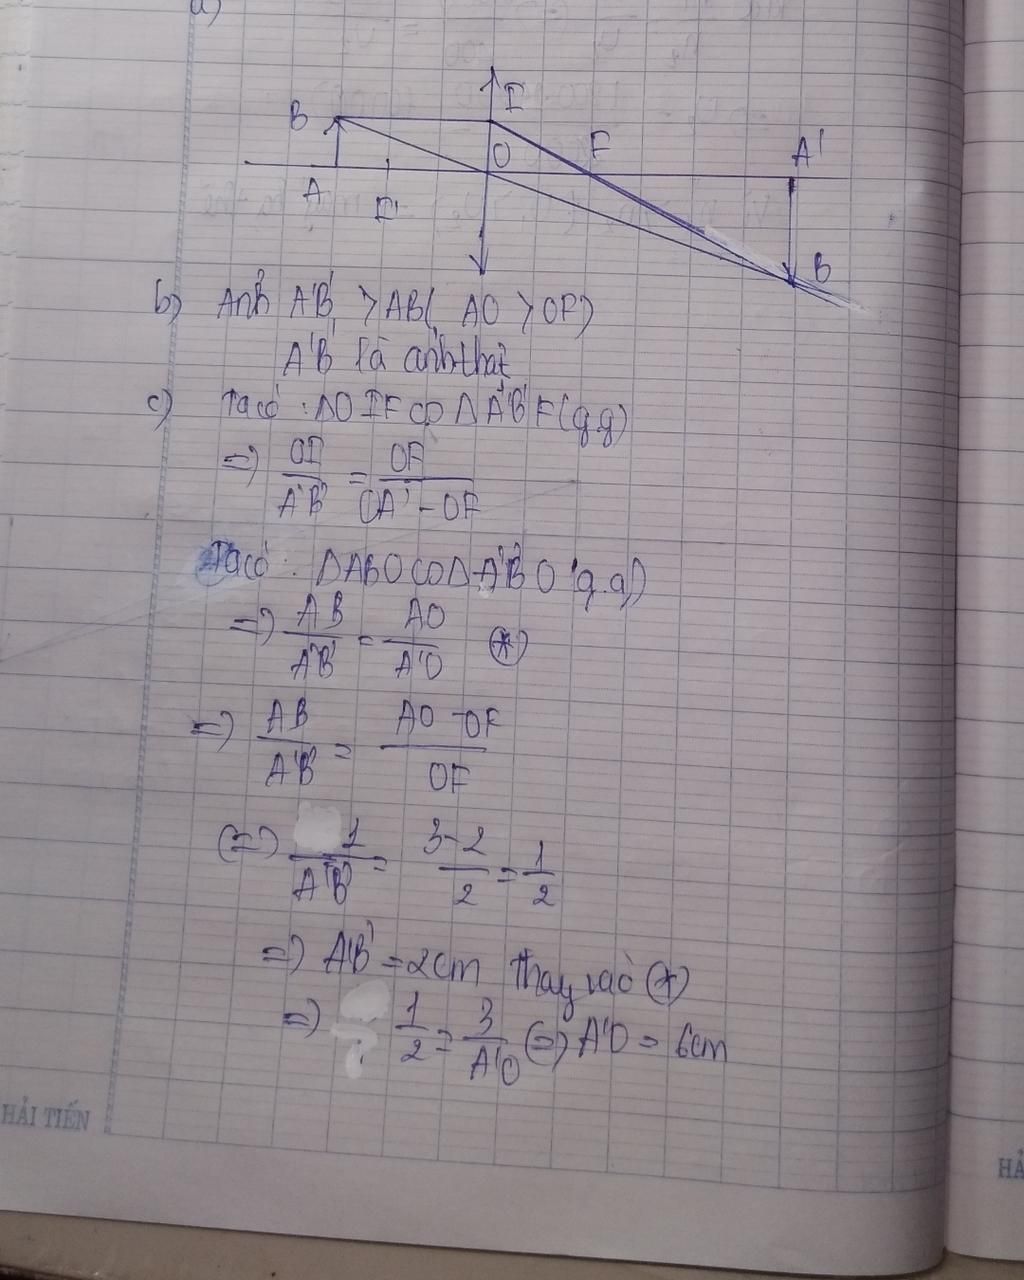 a)
B I
O F A'
A F'
B
b) Ảnh A'B' > AB ( AO > OF)
A'B' là ảnh thật
c) Ta có : ΔOIF ∽ ΔA'B'F (g.g)
=> OI/A'B' = OF/(OA' - OF)
Ta có : ΔABO ∽ ΔA'B'O (g.g)
=> AB/A'B' = AO/A'O (*)
=> AB/A'B' = (AO - OF)/OF
(=) 1/A'B' = (3-2)/2 = 1/2
=> A'B' = 2cm thay vào (*)
=> 1/2 = 3/A'O (=) A'O = 6cm
HẢI TIẾN
HẢ